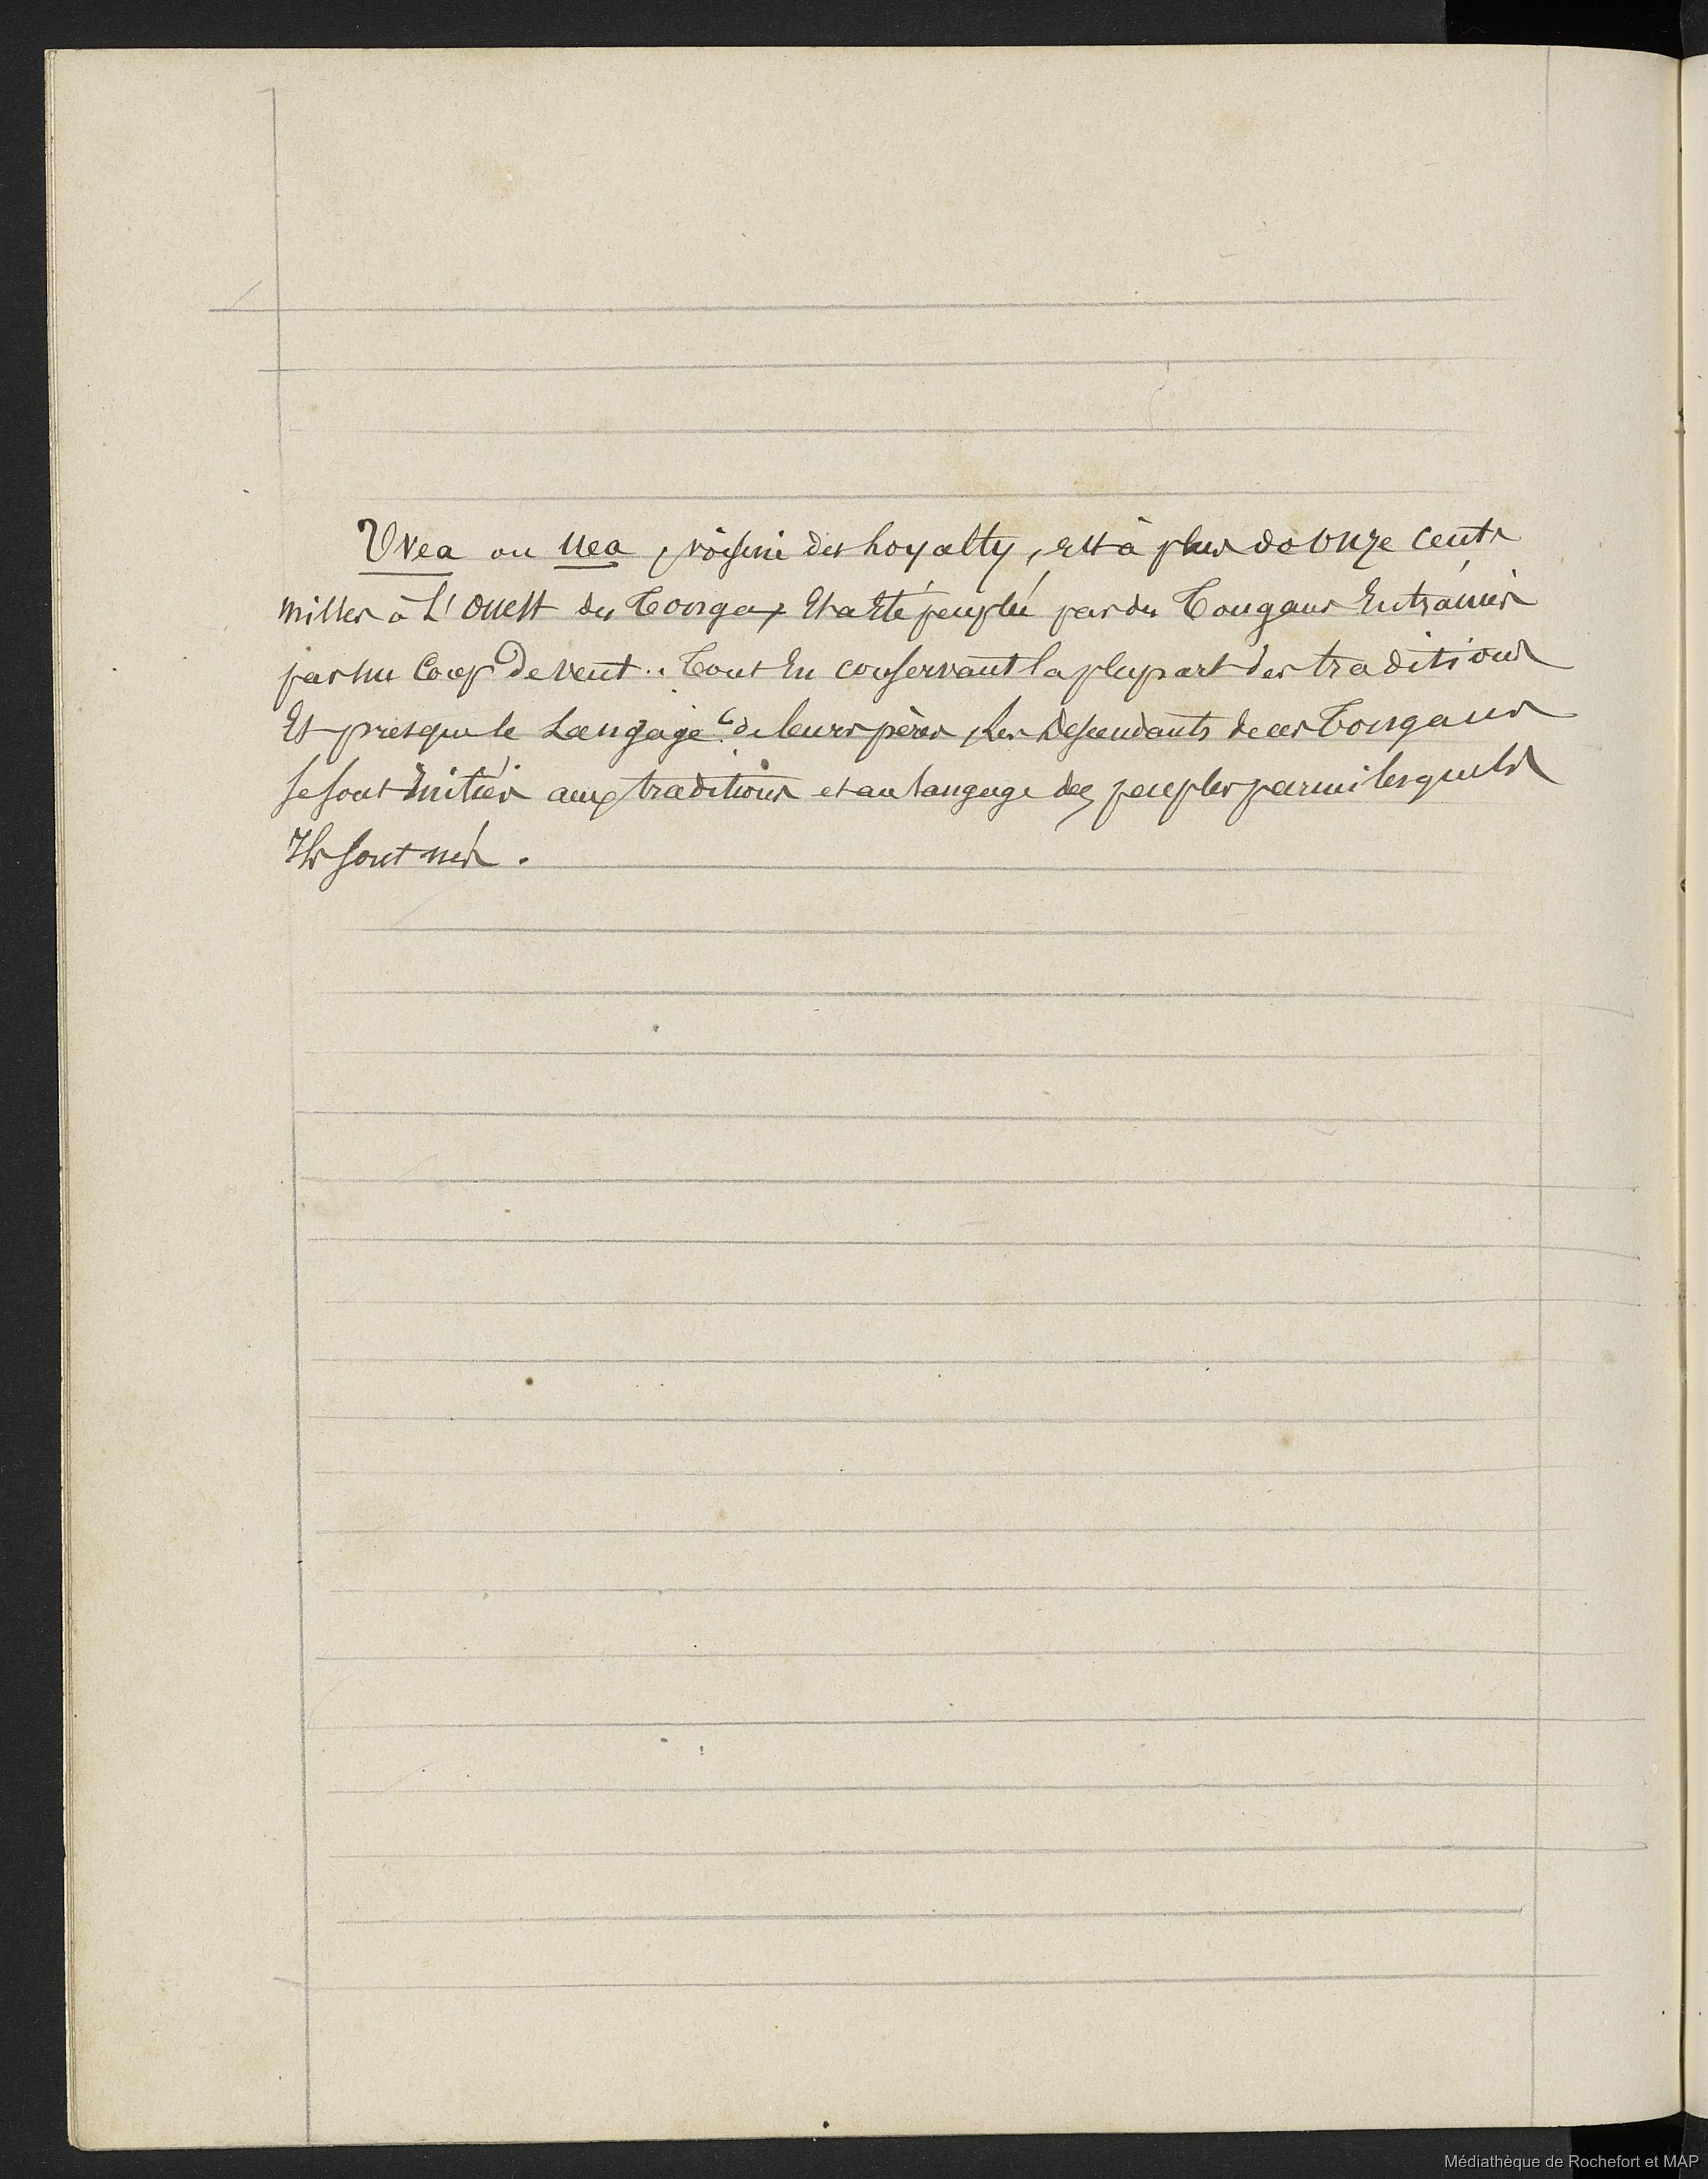 Uvea ou uea, voisine des Loyalty, est à plus de onze cents
milles à L'Ouest des Tonga, Et a été peuplée par des Tongans Entrainés
par un Coup de vent. Tout En conservant la plupart des traditions
Et presque le Langage de leurs pères, Les Descendants de ces Tongans
se sont Initiés aux traditions et au langage des peuples parmi lesquels
Ils sont nés.
Médiathèque de Rochefort et MAP